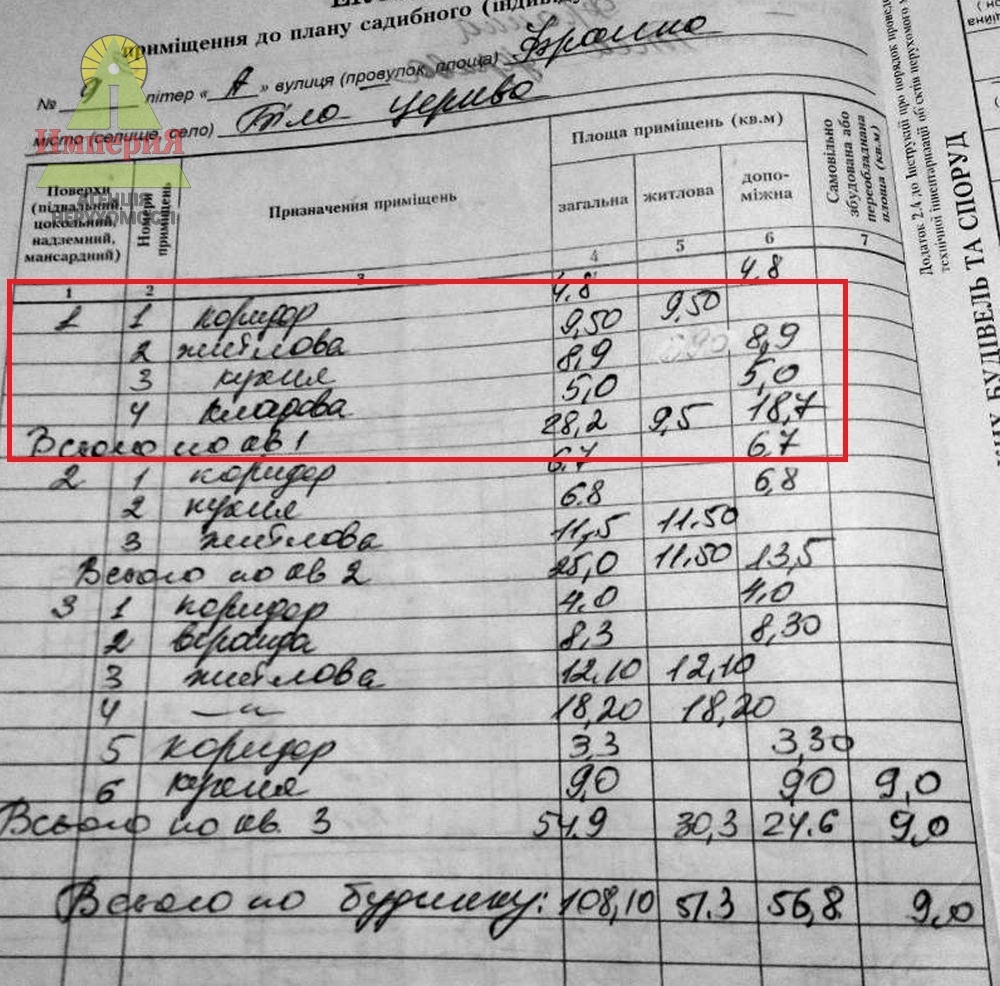 приміщення до плану садибного (індиві
№ 9 літер « А » вулиця (провулок, площа) Франка
місто (селище, село) Біла Церква
ИмпериЯ
АГЕНЦІЯ
НЕРУХОМОСТІ
Поверхи (підвальний, цокольний, надземний, мансардний) Номери приміщень Призначення приміщень Площа приміщень (кв.м) Самовільно збудована або переобладнана площа (кв.м)
загальна житлова допо-міжна
1 2 3 4 5 6 7
1 1 коридор 4.8 4.8
2 житлова 9,50 9,50
3 кухня 8,9 8,9
4 кладова 5,0 5,0
Всього по кв 1 28,2 9,5 18,7
2 1 коридор 6.7 6,7
2 кухня 6.8 6,8
3 житлова 11,5 11.50
Всього по кв 2 25,0 11,50 13,5
3 1 коридор 4.0 4.0
2 веранда 8,3 8,30
3 житлова 12,10 12,10
4 —"— 18,20 18,20
5 коридор 3,3 3,30
6 кухня 9,0 9,0 9,0
Всього по кв. 3 54.9 30,3 24.6 9,0
Всього по будинку: 108,10 51.3 56,8 9,0
Додаток 2.4 до Інструкції про порядок проведе
технічної інвентаризації об'єктів нерухомого
БУДІВЕЛЬ ТА СПОРУД